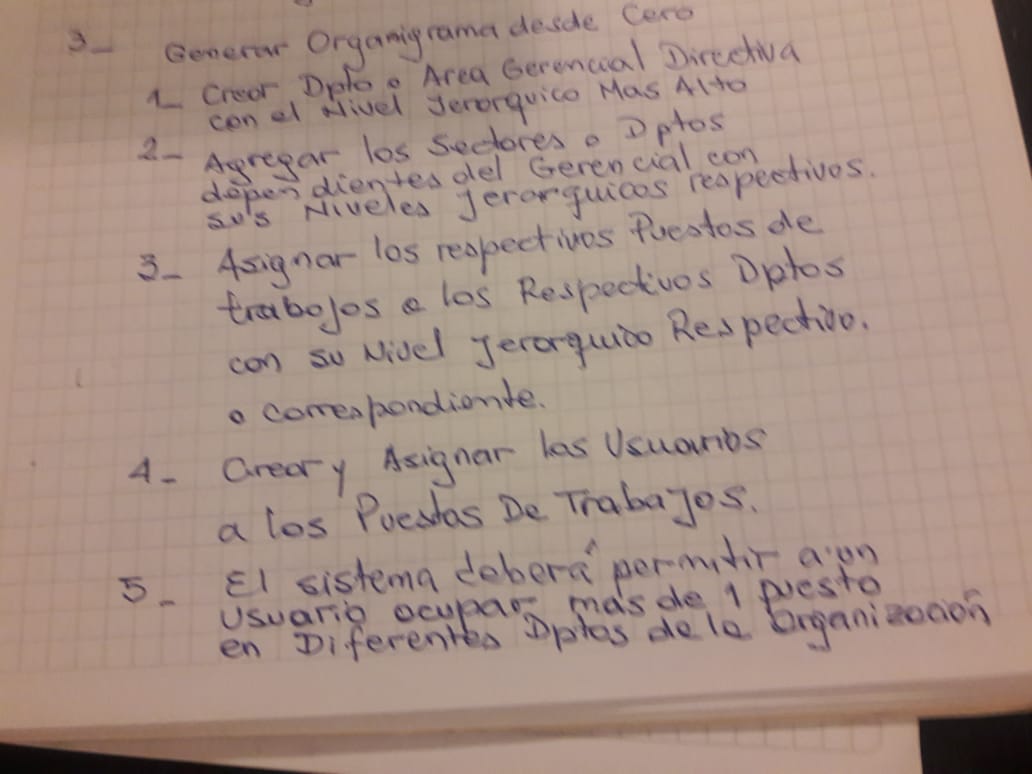 3- Generar Organigrama desde Cero
1- Crear Dpto o Area Gerencial Directiva
con el Nivel Jerarquico Mas Alto
2- Agregar los Sectores o Dptos
dependientes del Gerencial con
sus Niveles Jerarquicos respectivos.
3- Asignar los respectivos Puestos de
trabajos a los Respectivos Dptos
con su Nivel Jerarquico Respectivo.
o correspondiente.
4- Crear y Asignar los Usuarios
a los Puestos De Trabajos.
5- El sistema deberá permitir a un
Usuario ocupar mas de 1 puesto
en Diferentes Dptos de la Organización